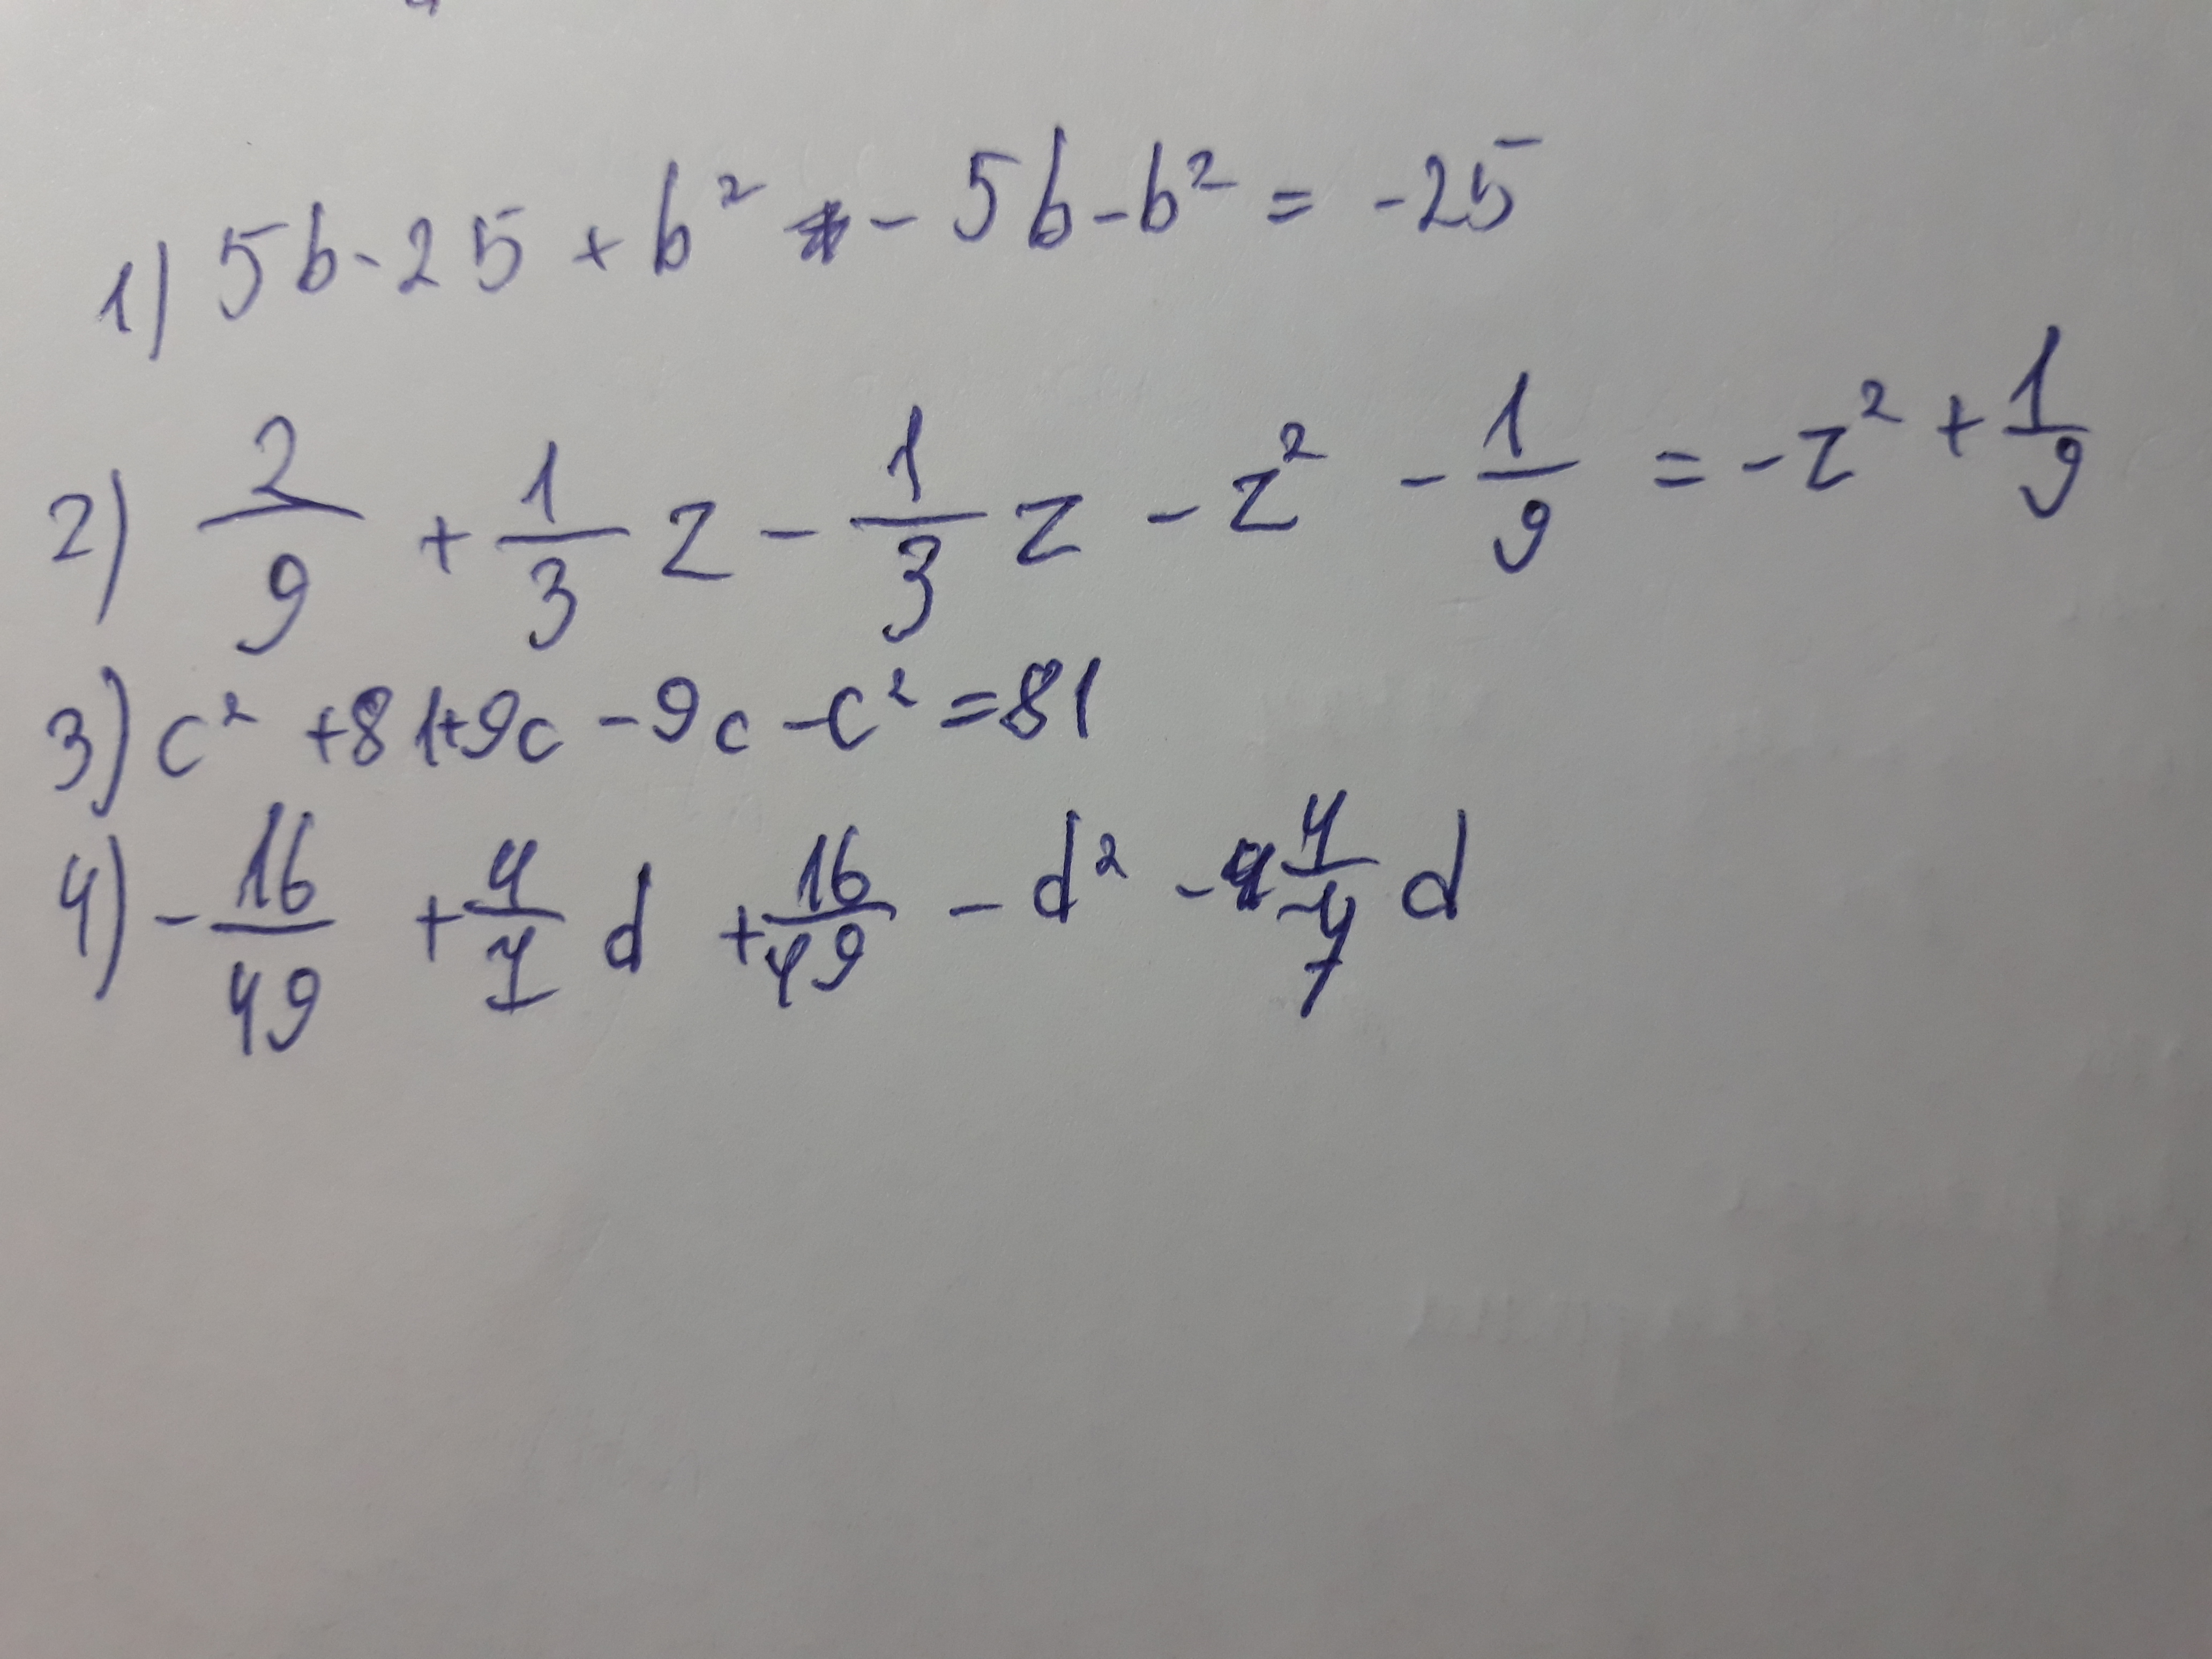 1) 5b - 25 + b² - 5b - b² = -25
2) 2/9 + 1/3 z - 1/3 z - z² - 1/9 = -z² + 1/9
3) c² + 81 + 9c - 9c - c² = 81
4) - 16/49 + 4/7 d + 16/49 - d² - 4/7 d